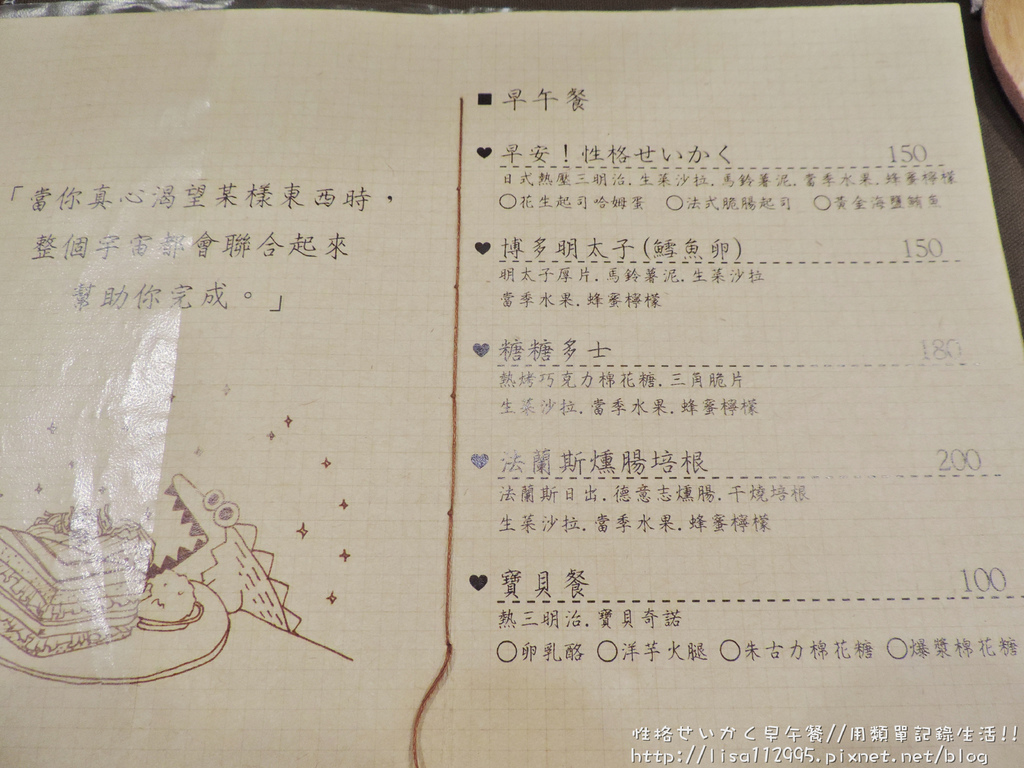 「當你真心渴望某樣東西時，
整個宇宙都會聯合起來
幫助你完成。」
■早午餐
♥早安！性格せいかく 150
日式熱壓三明治.生菜沙拉.馬鈴薯泥.當季水果.蜂蜜檸檬
○花生起司哈姆蛋 ○法式脆腸起司 ○黃金海鹽鮪魚
♥博多明太子(鱈魚卵) 150
明太子厚片.馬鈴薯泥.生菜沙拉
當季水果.蜂蜜檸檬
♥糖糖多士 180
熱烤巧克力棉花糖.三角脆片
生菜沙拉.當季水果.蜂蜜檸檬
♥法蘭斯燻腸培根 200
法蘭斯日出.德意志燻腸.干燒培根
生菜沙拉.當季水果.蜂蜜檸檬
♥寶貝餐 100
熱三明治.寶貝奇諾
○卵乳酪 ○洋芋火腿 ○朱古力棉花糖 ○爆漿棉花糖
性格せいかく早午餐//用類單記錄生活!!
http://lisa112995.pixnet.net/blog